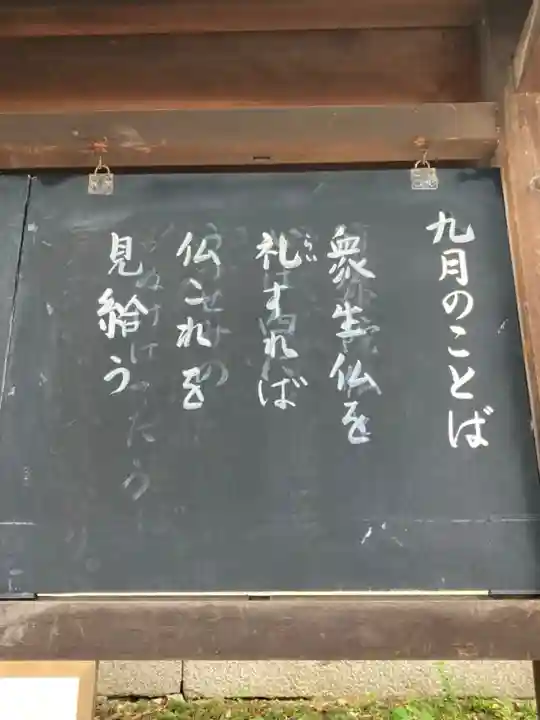 九月のことば
衆生仏を
礼すれば
らい
仏これを
見給う